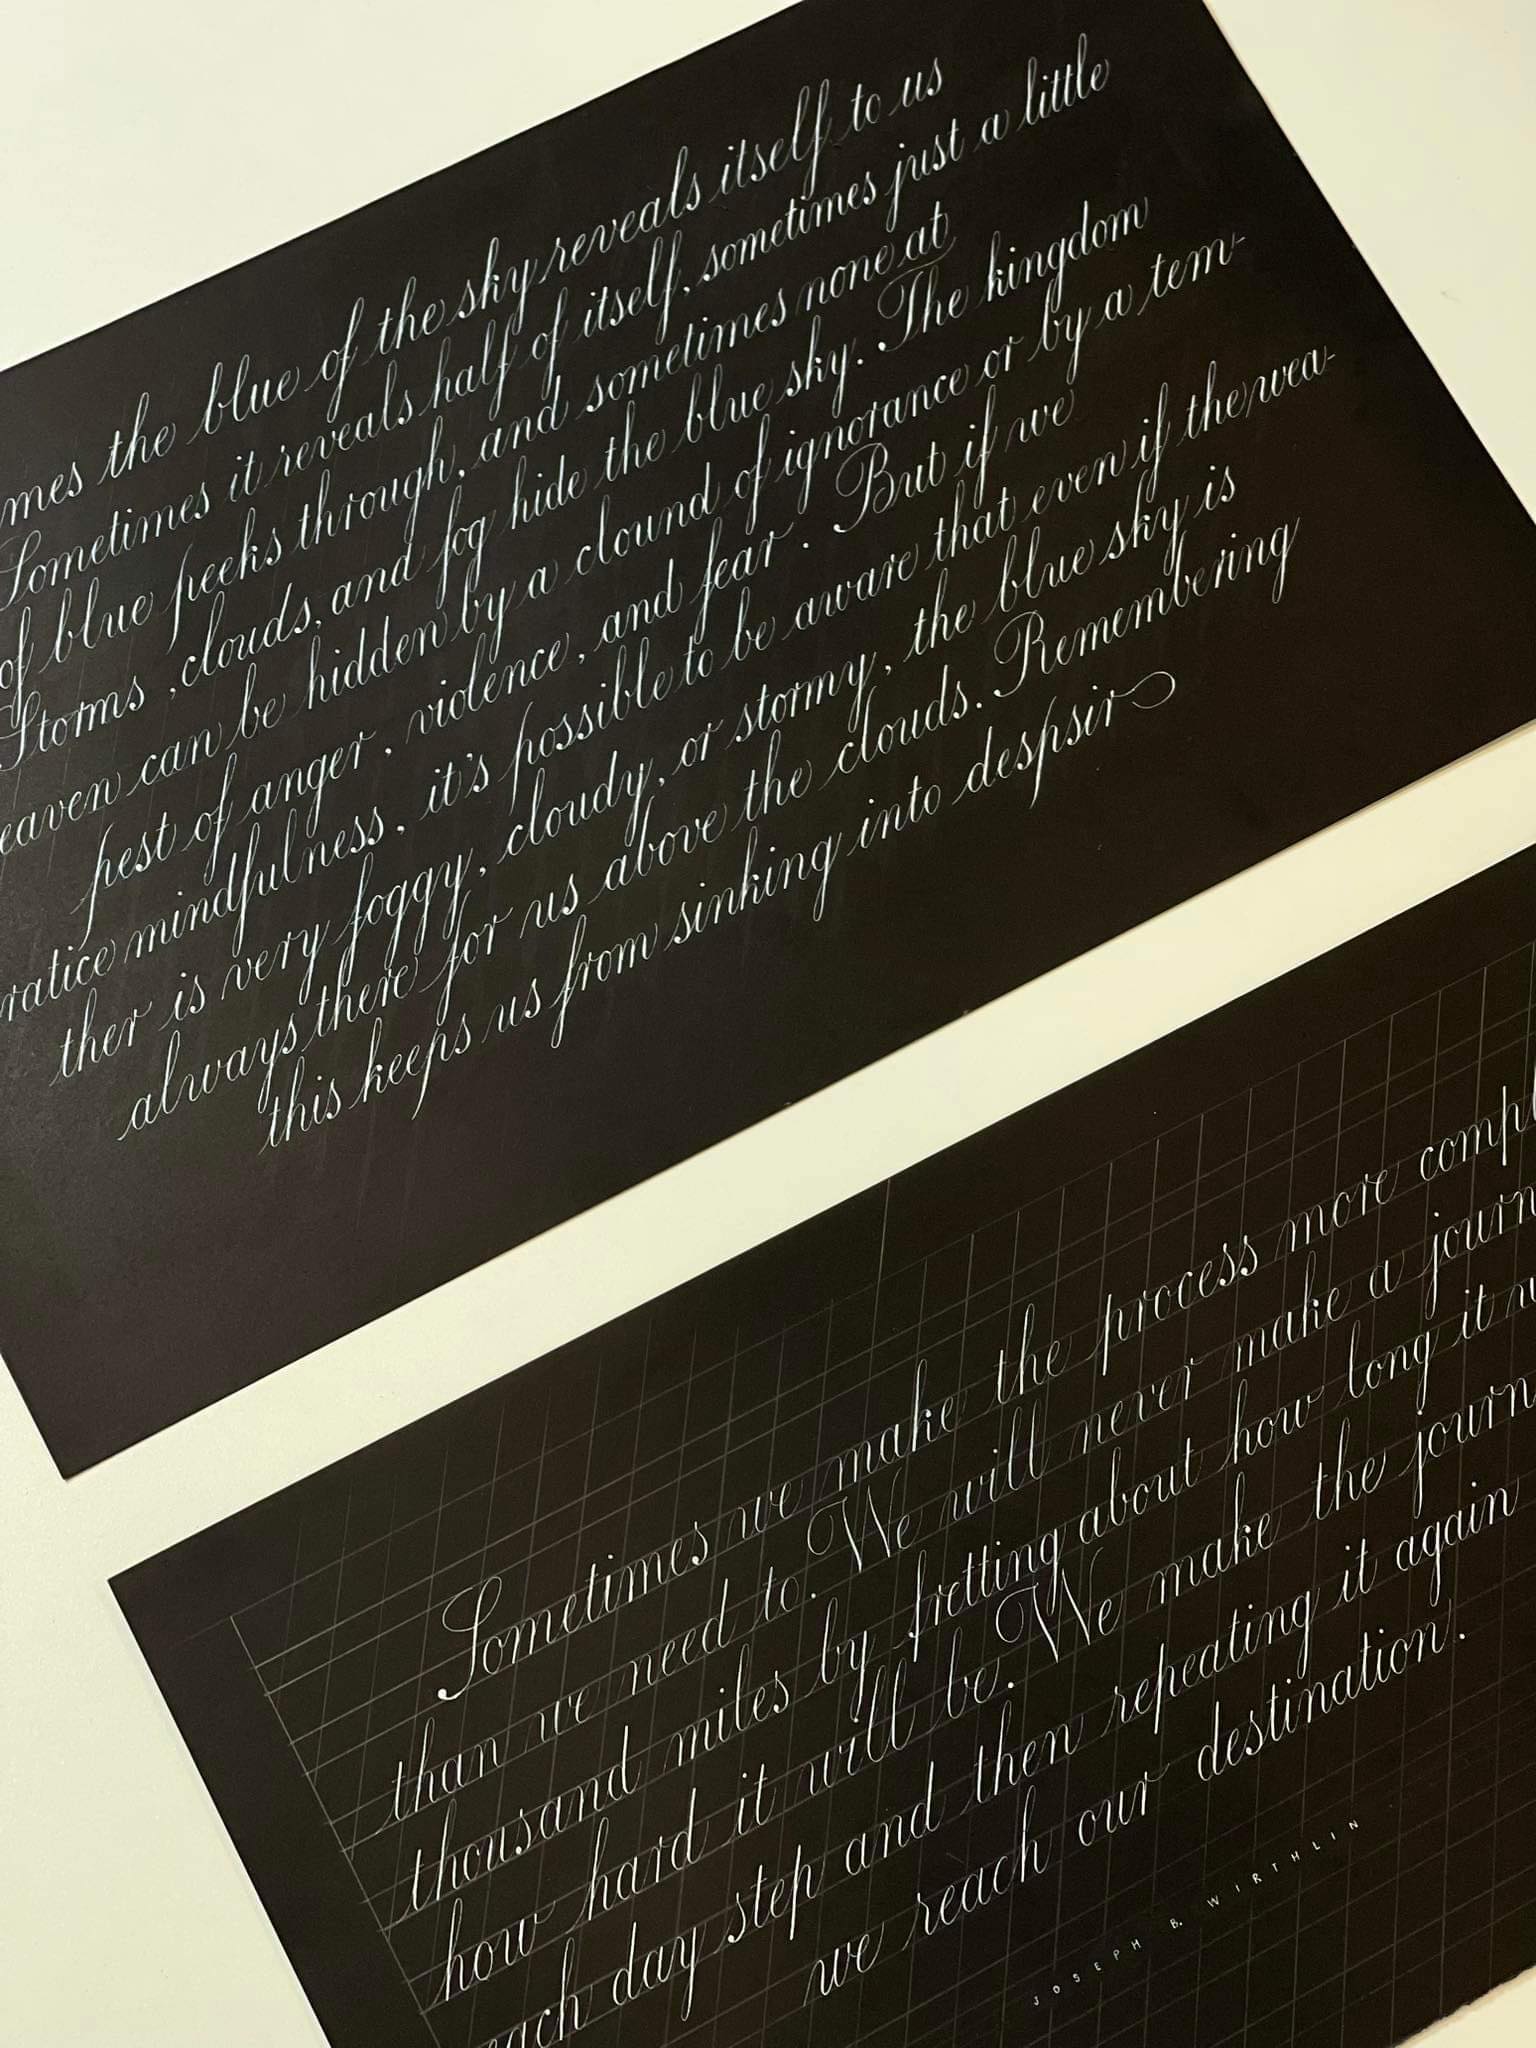 mes the blue of the sky reveals itself to us
Sometimes it reveals half of itself, sometimes just a little
of blue peeks through, and sometimes none at
Storms, clouds, and fog hide the blue sky. The kingdom
eaven can be hidden by a clound of ignorance or by a tem-
pest of anger, violence, and fear. But if we
ratice mindfulness, it's possible to be aware that even if the wea-
ther is very foggy, cloudy, or stormy, the blue sky is
always there for us above the clouds. Remembering
this keeps us from sinking into despsir
Sometimes we make the process more compl
than we need to. We will never make a journ
thousand miles by fretting about how long it w
how hard it will be. We make the journ
each day step and then repeating it again
we reach our destination.
JOSEPH B. WIRTHLIN